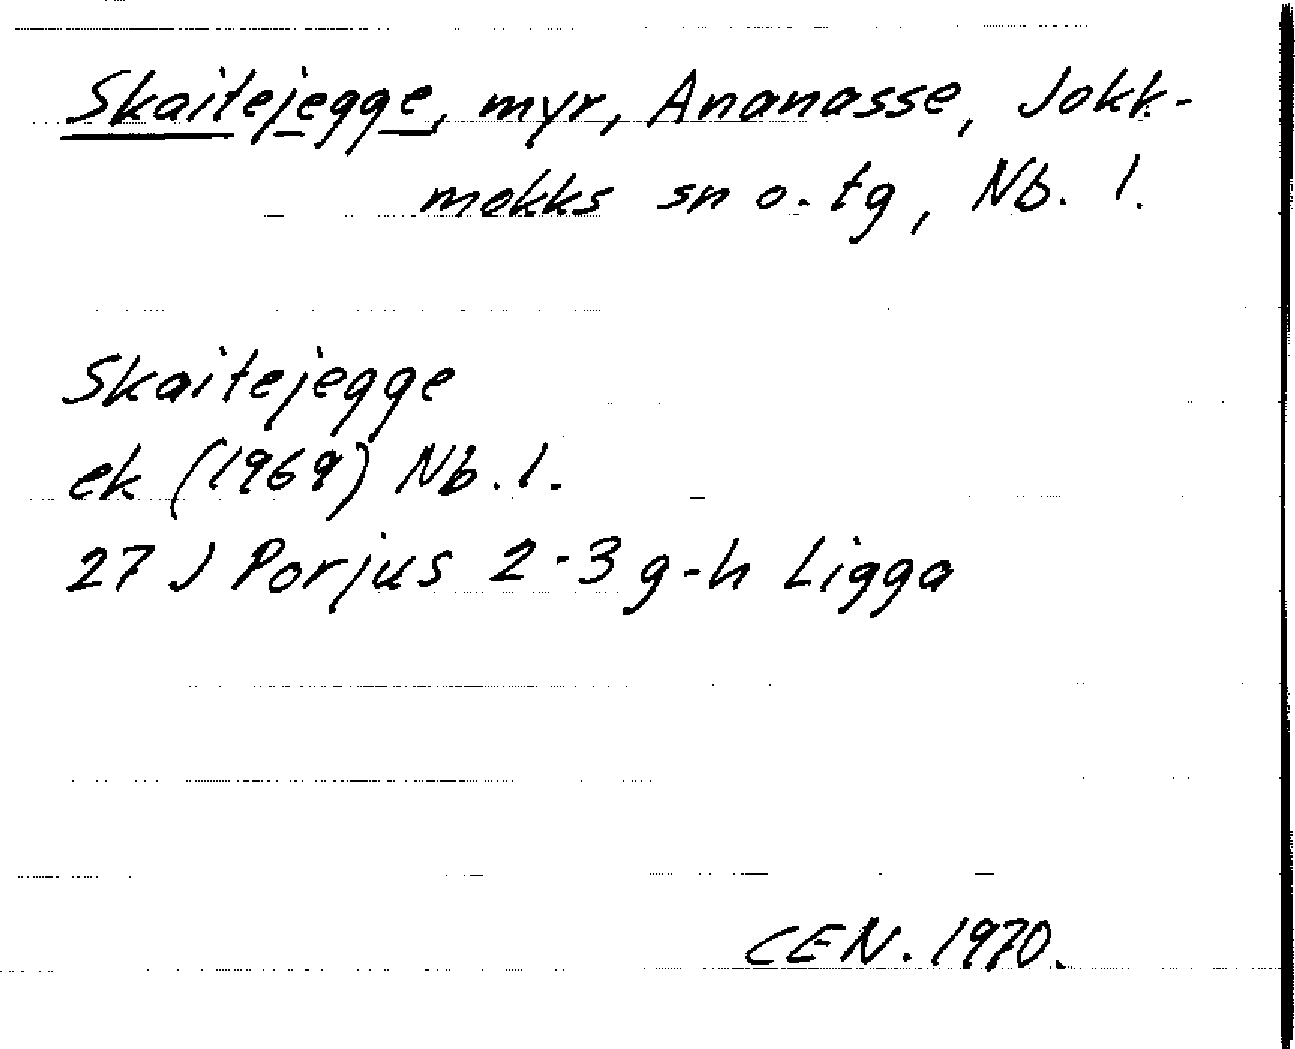 Skaitejegge, myr, Ananasse, Jokk-
mokks sn o. tg, Nb. l.
Skaitejegge
ek (1969) Nb. l.
27 J Porjus 2-3 g-h Ligga
CEN. 1970.